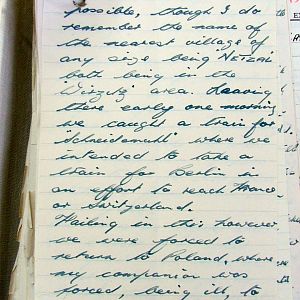 possible, though I do
remember the name of
the nearest village of
any size being
both being in the
area. Leaving
there early one morning
we caught a train for
'Schneidemuhl' where we
intended to take a
train for Berlin in
an effort to reach France
or Switzerland.
Failing in this however,
we were forced to
return to Poland, where
my companion was
forced, being ill, to